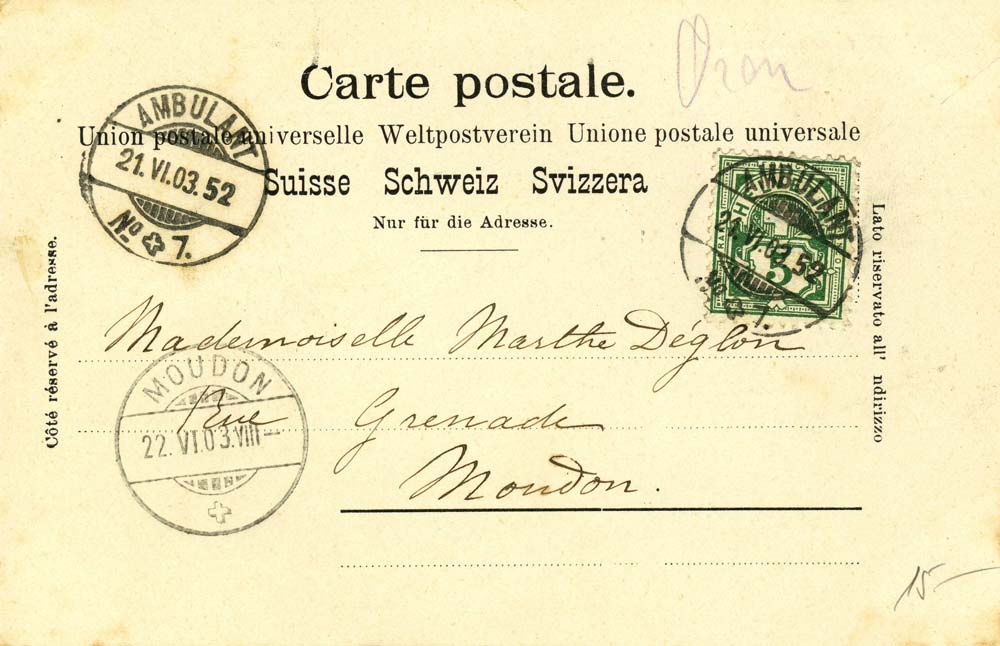 Carte postale.
Oron
Union postale universelle Weltpostverein Unione postale universale
Suisse Schweiz Svizzera
Nur für die Adresse.
AMBULANT
21.VI.03.52
No 7.
AMBULANT
21.VI.03.52
No 7.
5
Côté réservé à l'adresse.
Lato riservato all' ndirizzo
Mademoiselle Marthe Déglon
Rue Grenade
Moudon.
MOUDON
22.VI.03.VIII-
15-